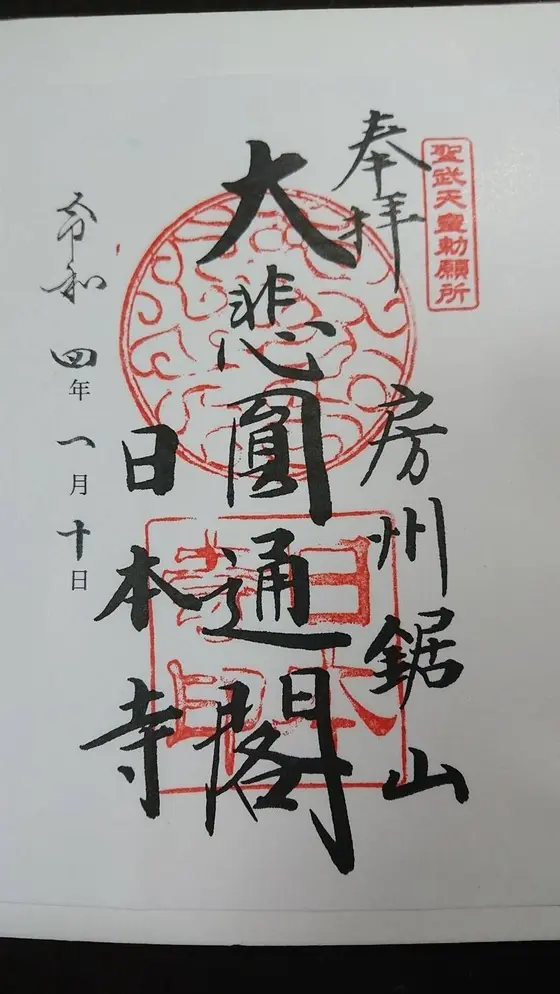 聖武天皇勅願所
奉拝
房州鋸山
大悲圓通閣
日本寺印
日本寺
令和四年一月十日